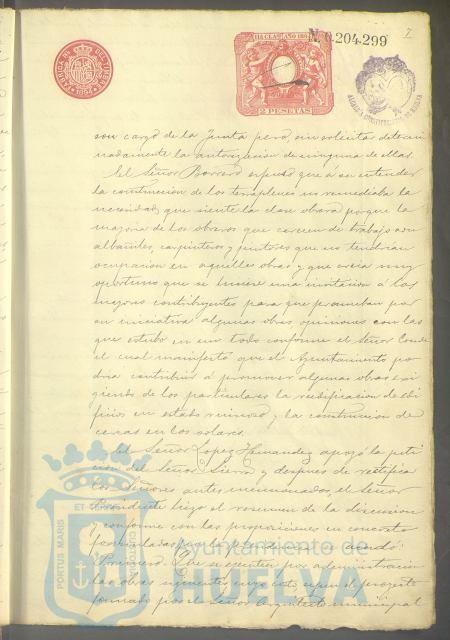 7
N. 0.204.299
11ª CLASE AÑO 189
2 PESETAS
1894
son cargo de la Junta pero, sin solicitar determi
nadamente la autorizacion de ninguna de ellas.
El Señor Borrero expuso que á su entender
la construccion de los terraplenes no remediaba la
necesidad que siente la clase obrera porque la
mayoria de los obreros que carecen de trabajo son
albañiles, carpinteros y pintores que no tendrian
ocupacion en aquellas obras y que creia muy
oportuno que se hiciere una invitacion á los
mayores contribuyentes para que promuevan por
su iniciativa algunas obras, opiniones con las
que estubo en un todo conforme el Señor Conde
el cual manifestó que el Ayuntamiento po
dria contribuir á promover algunas obras exi
giendo de los particulares la reedificacion de edi
ficios en estado ruinoso y la construccion de
cercas en los solares.
El Señor Lopez Hernandez apoyó la peti
cion del Señor Sierra y despues de rectificar
los Señores antes mencionados, el Señor
Presidente hizo el resumen de la discusion
y conforme con las proposiciones en concreto
formuladas por la se acordó:
Primero. Que se ejecuten por administracion
las obras siguientes segun el proyecto
formado por el Señor Arquitecto municipal
PORTUS MARIS
ET TERRAE
CUSTODIA
Ayuntamiento de
HUELVA